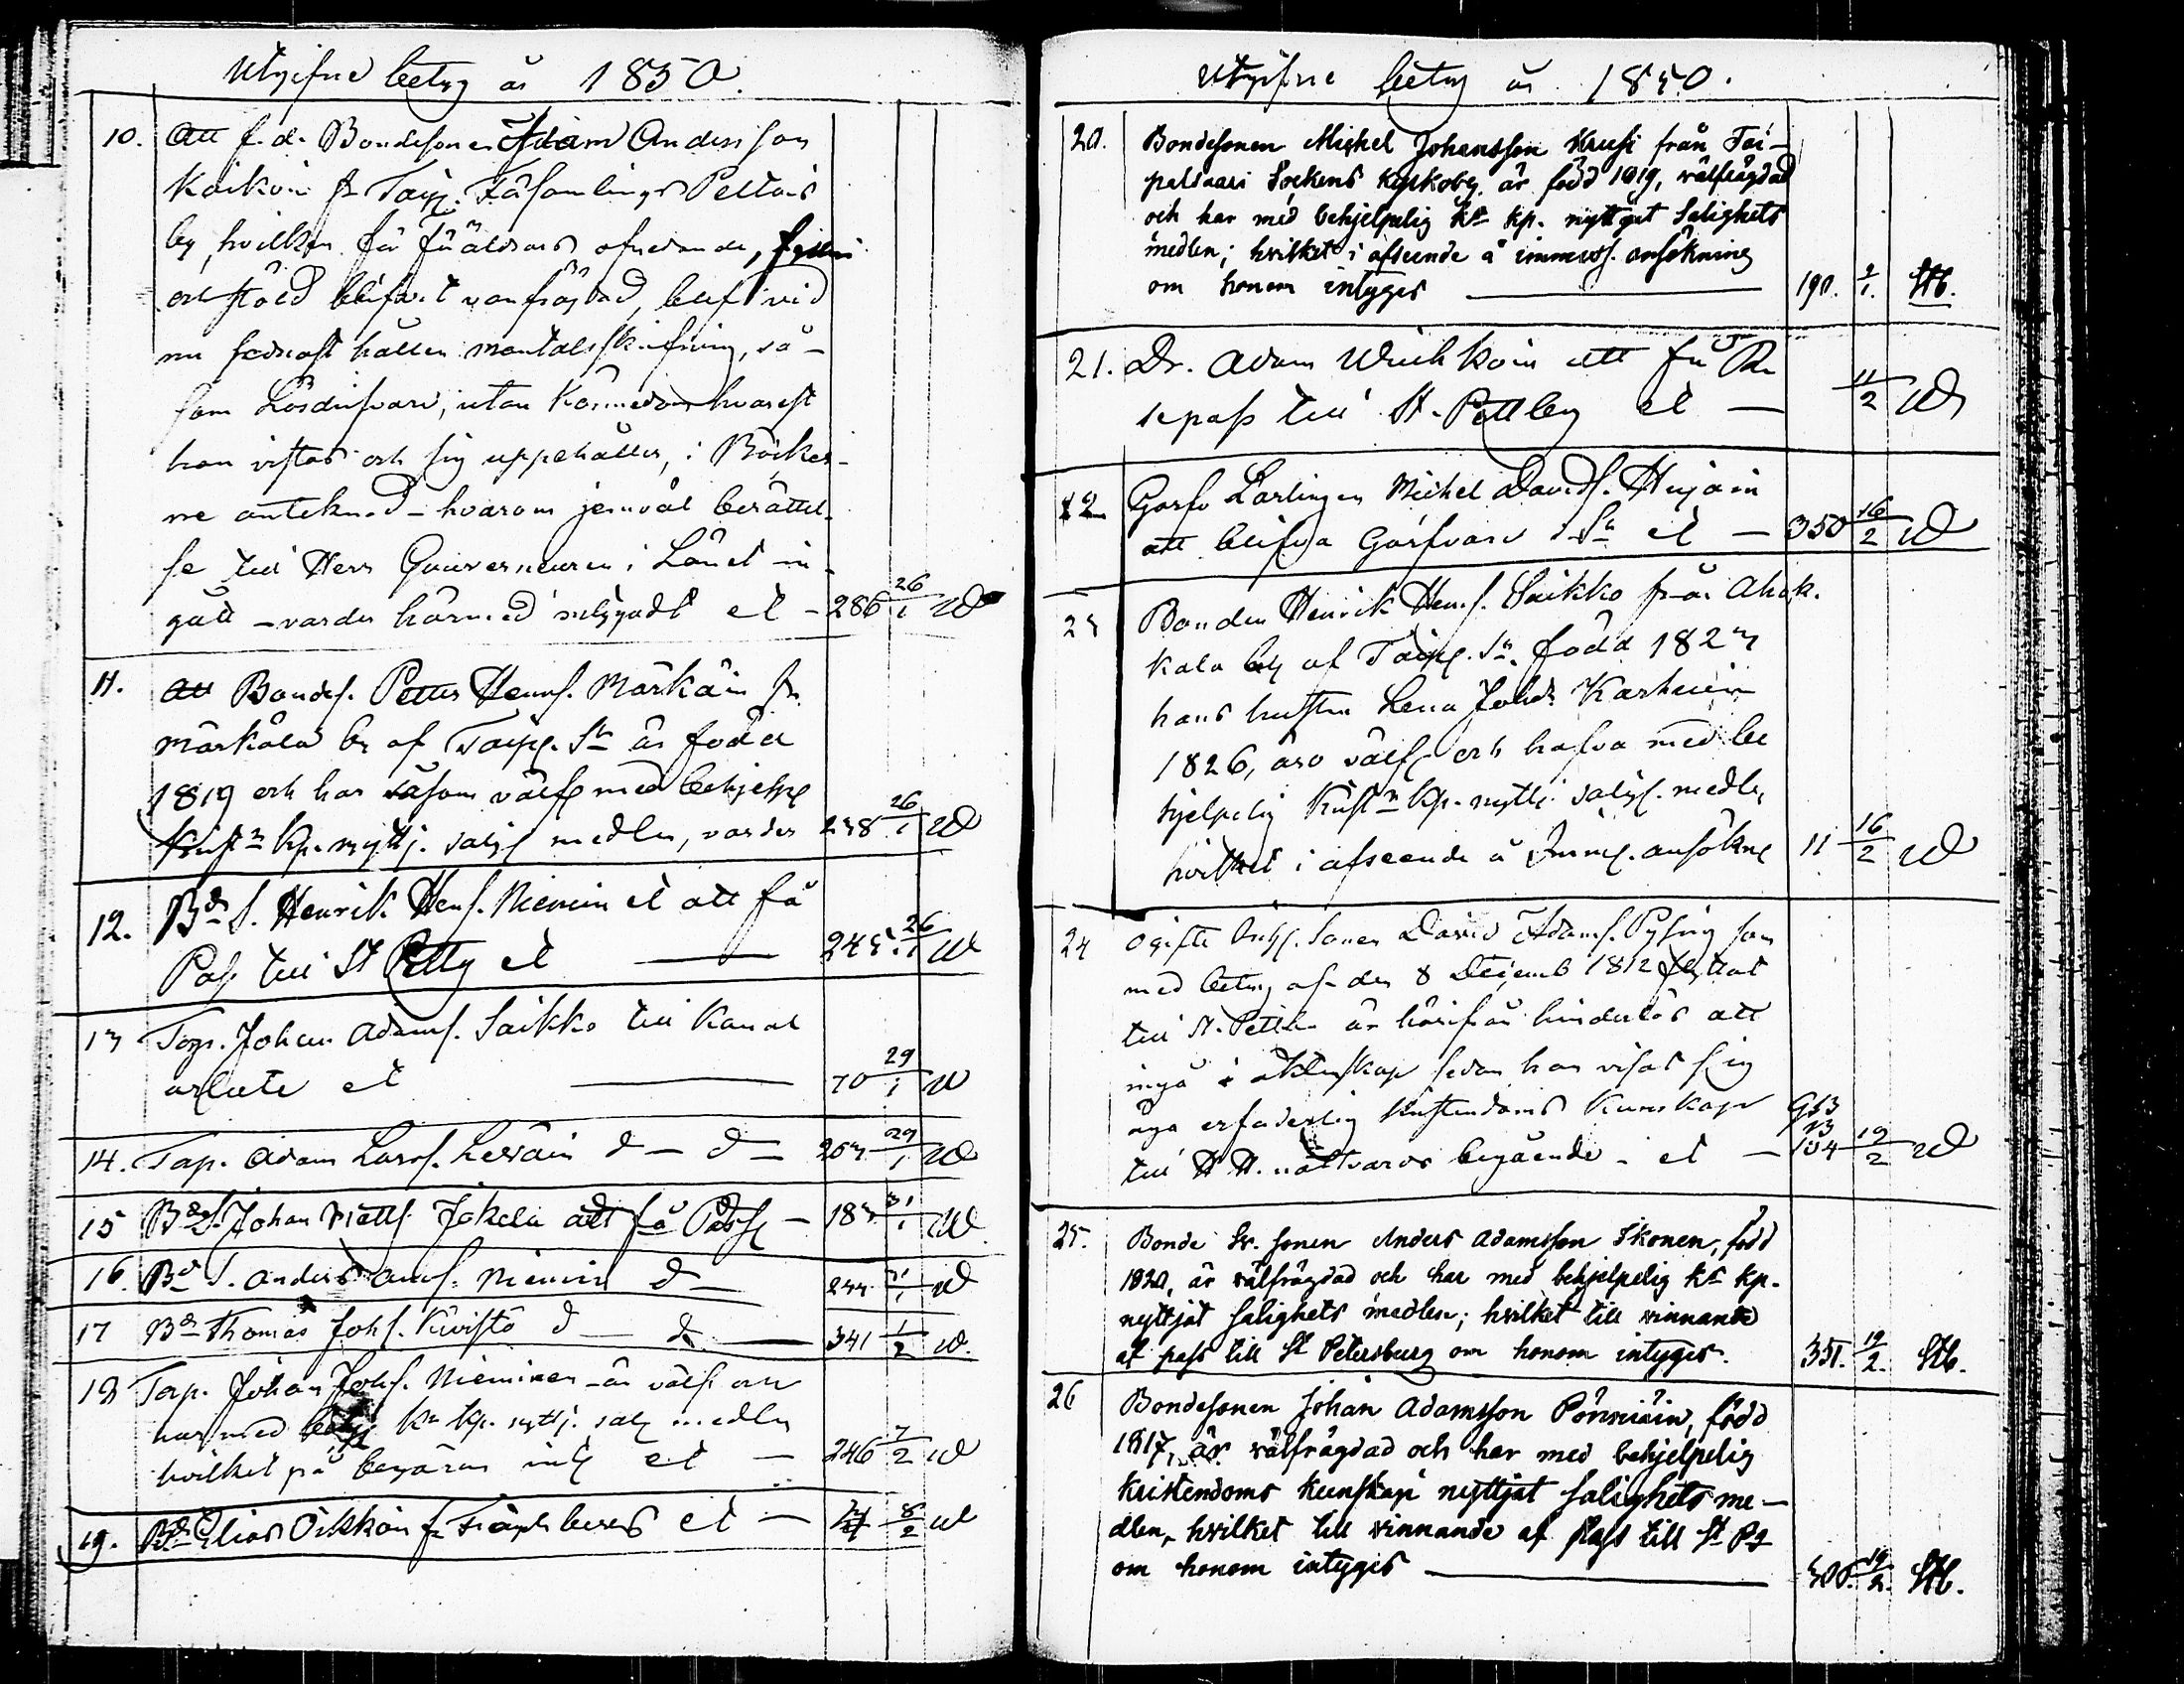 Utgifne betyg år 1850.
10. Att f. d. Bondesonen Adam Andersson
Kaikoin fr Taip. Församlings Peltois
by, hvilken för föräldrars ofredande, fylleri
och stöld blifvit vanfrägdad, blef vid
nu sednast hållen mantalsskrifning, så-
som Lösdrifvare, utan kännedom hvarest
han vistas och sig uppehåller, i Böcker-
ne anteknad - hvarom jemväl berättel-
se till Herr Gouverneuren i Länet in-
gått - varder härmed intygadt et - 286 26/1 W
11. Att Bondes. Petter Henrs. Märkäin fr.
Märkälä by af Taip. Sn är född
1819 och har såsom välfr med behjelpl
Krist:m Kp. nyttj. salig medlen, varder 238 26/1 W
12. Bd S. Henrik Hens. Nieminen et att få
Pass till St Pettg et — 245. 26/1 W
13 Torp. Johan Adams. Saikko till Kanal
arbete et — 70 29/1 W
14. Torp. Adam Larss. Leväin d — d — 267 29/1 W
15 Bds. Johan Matts. Jokela att få Pass — 183. 31/1 W
16. Bd S. Anders Ands. Nieminen d — 244 31/1 W
17 Bd Thomas Johs. Kuisto d — d — 341 1/2 W.
18 Torp. Johan Johs. Nieminen är välfr och
har med Kr Kp. nyttj. salig medlen
hvilket på begäran intg et — 246 7/2 W
19. Bd Elias Oikkoin fr et — 8/2 W
Utgifne betyg år 1850.
20. Bondesonen Mickel Johansson Krusi från Tai-
palsaari Sockens kyrkoby, är född 1819, välfrägdad
och har med behjelpelig Kr Kp. nyttjat Salighets
medlen; hvilket i afseende å immiss. ansökning
om honom intyges — 190. 9/1. Stb.
21. Dr. Adam Uuikkoin att få Re
sepass till St. Pettbg et — 11/2 W
22 Garfv Lärlingen Michel Davids. Hujain
att blifva Garfvare i Sn et — 350 16/2 W
23 Bonden Henrik Henrs. Saikko från Ahok-
kala by af Taip. Sn. född 1823
hans hustru Lena Johdr Karhuin
1826, äro välfr och hafva med be
hjelpelig Krist:m Kp. nyttj. saligs. medlen,
hvilket i afseende å Immis. ansökng 11 16/2 W
24 ogifte sonen David Adams. Pysing som
med betyg af den 8 Decemb 1812 flyttat
till St. Pettb är härifrån hinderlös att
ingå i äktenskap sedan han visat sig
äga erforderlig Kristendoms Kunskap
till H H. nattvards begående - et — 104 19/2 W
25. Bonde Sv. Sonen Anders Adamsson Ikonen, född
1820, är välfrägdad och har med behjelpelig Kr Kp.
nyttjat salighets medlen; hvilket till vinnande
af pass till St Petersburg om honom intyges. 351. 19/2. Stb.
26 Bondesonen Johan Adamsson Pönniäin, född
1817, är välfrägdad och har med behjelpelig
Kristendoms Kunskap nyttjat salighets me-
dlen, hvilket till vinnande af pass till St Pg
om honom intyges — 300. 19/2. Stb.